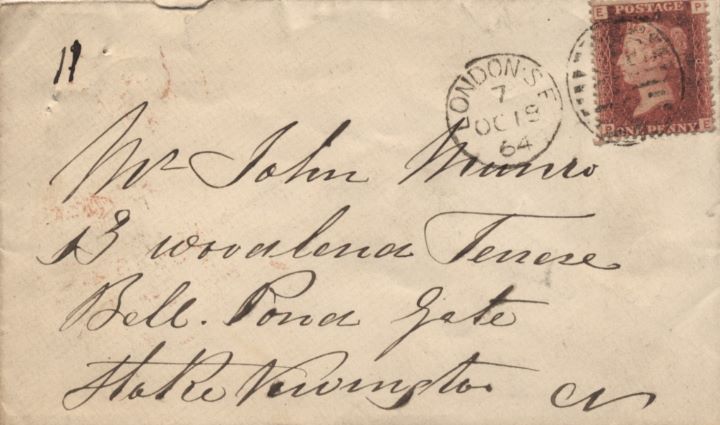 E POSTAGE P
11
LONDON·S.E
7
OC 18
64
P ONE PENNY E
Mr John Munro
13 woodland Terrese
Bell. Pond Gate
Stoke Newington N